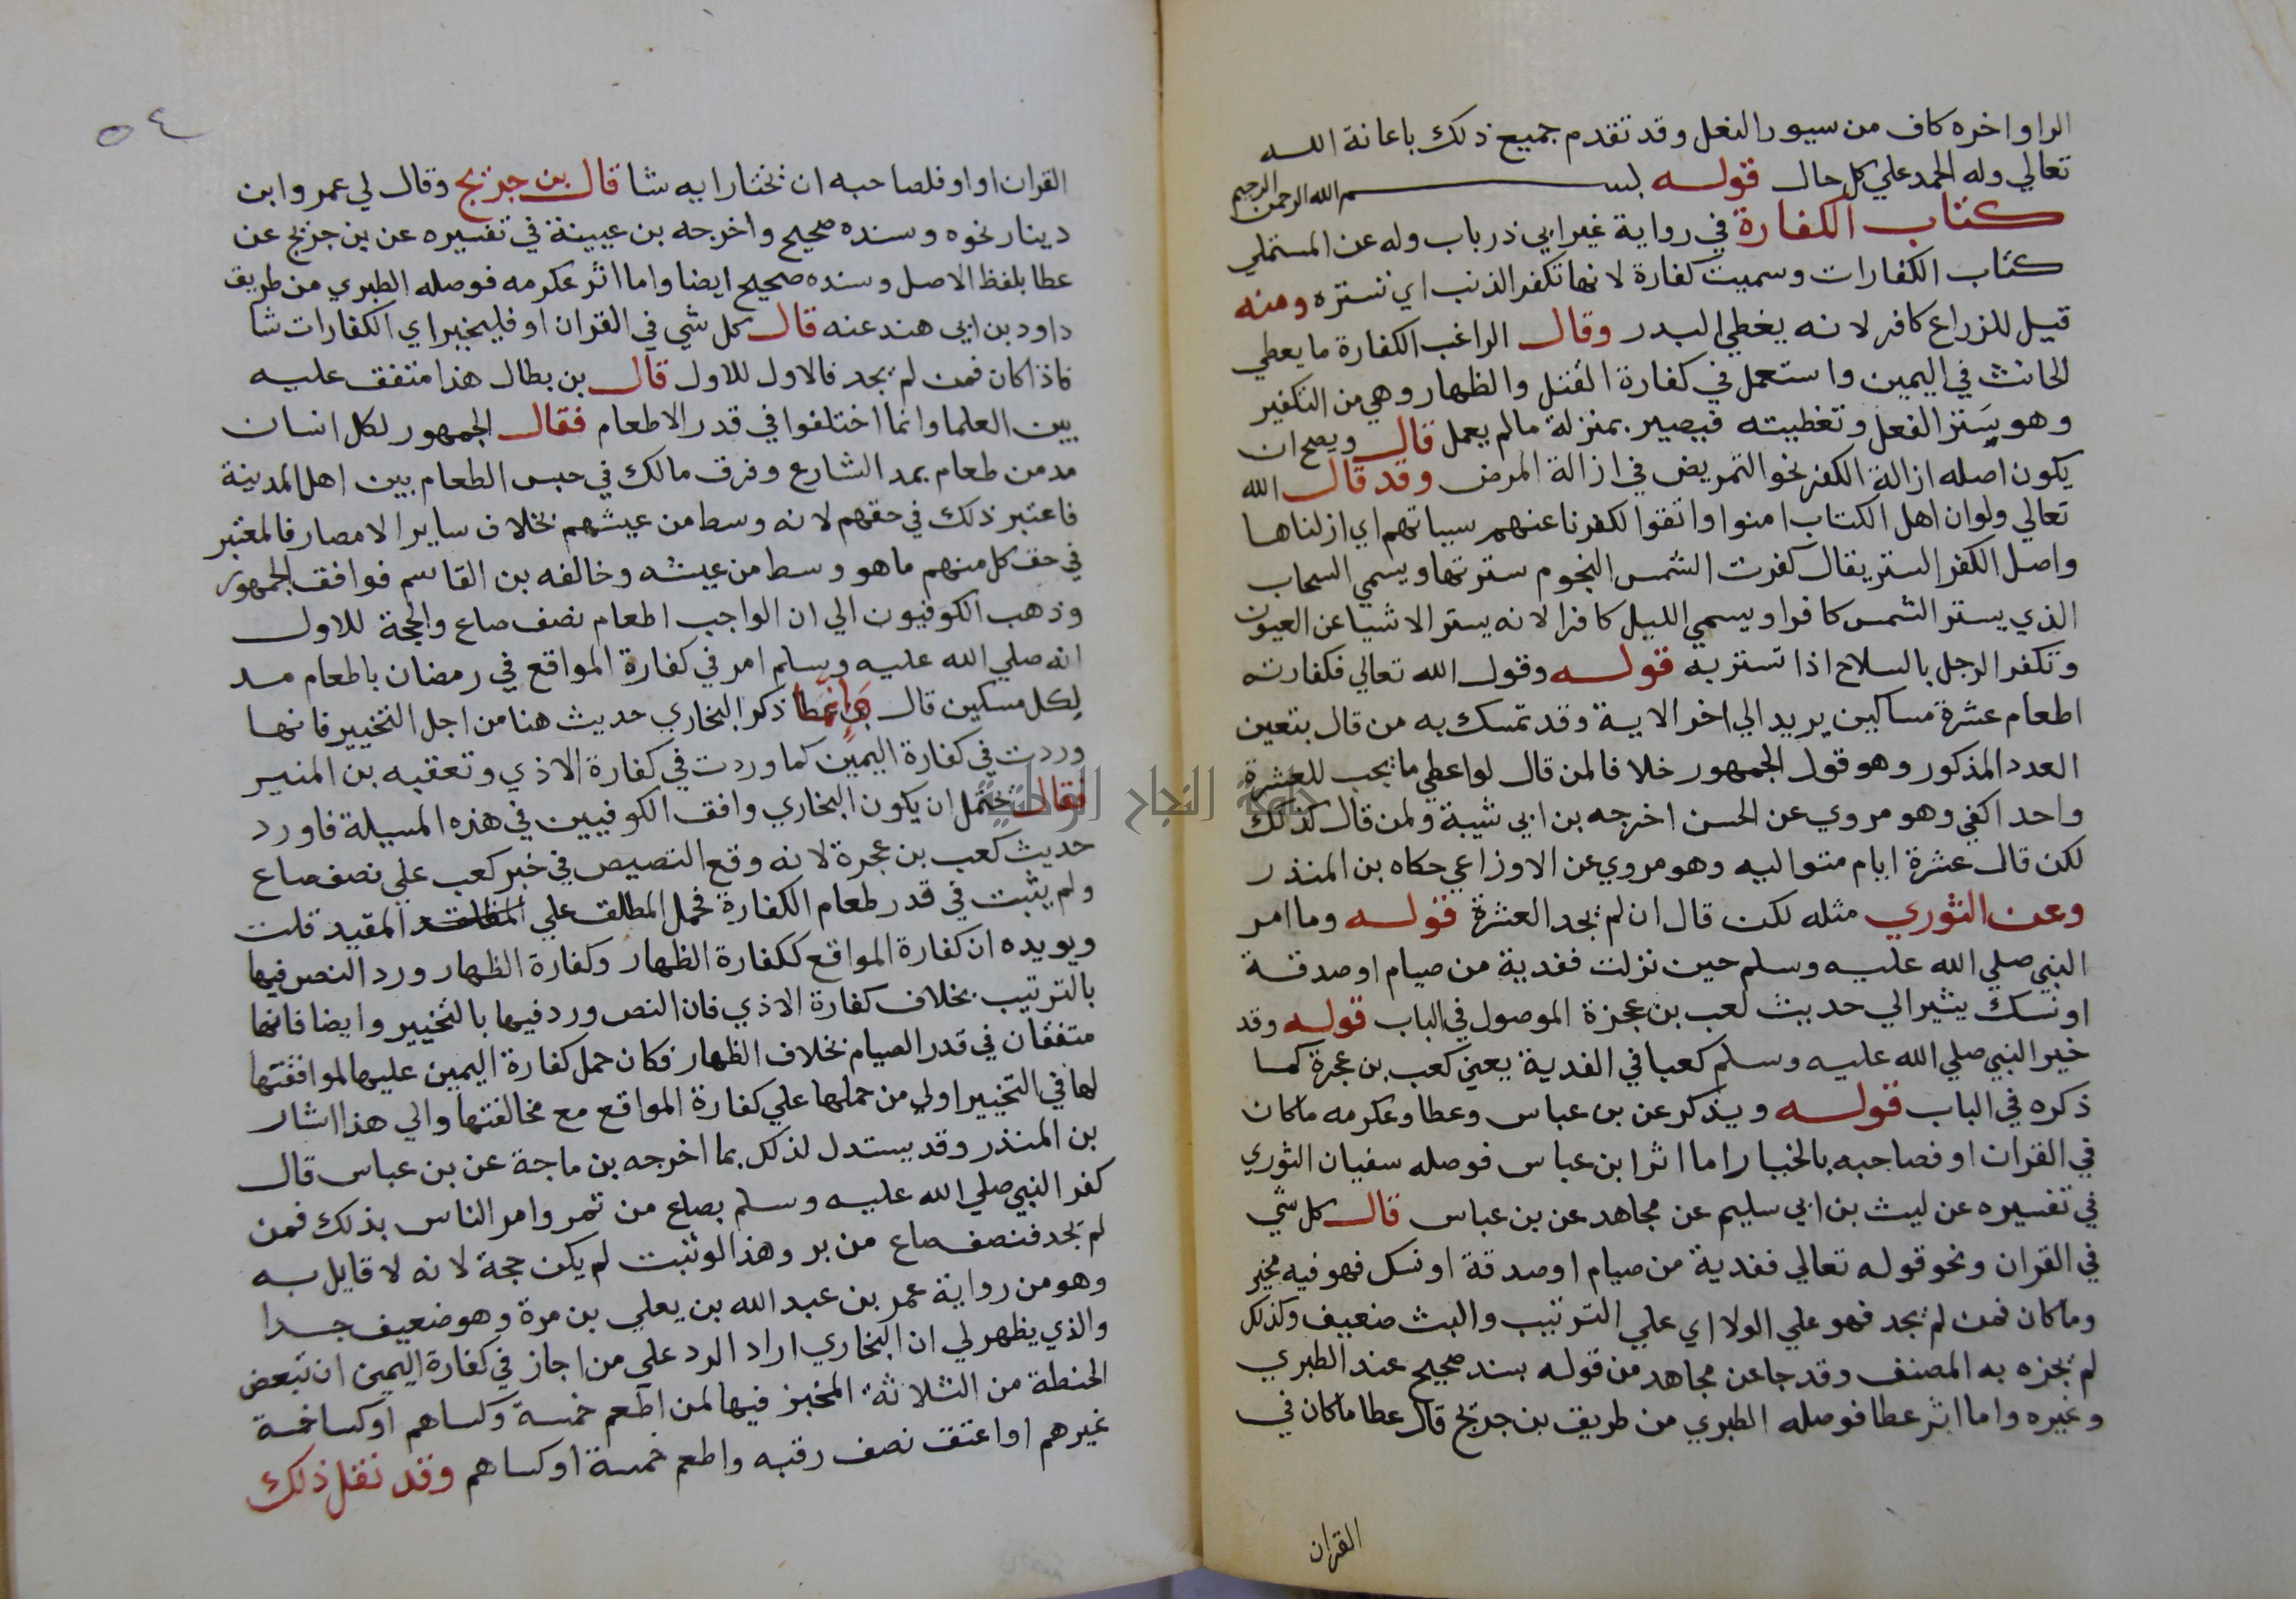 الراو اخره كاف من سيور النعل وقد تقدم جميع ذلك باعانة الله
تعالي وله الحمد علي كل حال قوله بسم الله الرحمن الرحيم
كتاب الكفارة في رواية غير ابي ذر باب وله عن المستملي
كتاب الكفارات وسميت كفارة لانها تكفر الذنب اي تستره ومنه
قيل للزراع كافر لانه يغطي البدر وقال الراغب الكفارة ما يعطي
الحانث في اليمين واستعمل في كفارة القتل والظهار وهي من التكفير
وهو ستر الفعل وتغطيته فيصير بمنزلة ما لم يعمل قال ويصح ان
يكون اصله ازالة الكفر نحو التمريض في ازالة المرض وقد قال الله
تعالي ولو ان اهل الكتاب امنوا واتقوا لكفرنا عنهم سياتهم اي ازلناها
واصل الكفر الستر يقال كفرت الشمس النجوم سترتها ويسمي السحاب
الذي يستر الشمس كافرا ويسمي الليل كافرا لانه يستر الاشيا عن العيون
وتكفر الرجل بالسلاح اذا تستر به قوله وقول الله تعالي فكفارته
اطعام عشرة مساكين يريد الي اخر الاية وقد تمسك به من قال بتعين
العدد المذكور وهو قول الجمهور خلافا لمن قال لو اعطي ما يجب للعشرة
واحدا كفي وهو مروي عن الحسن اخرجه بن ابي شيبة ولمن قال كذلك
لكن قال عشرة ايام متواليه وهو مروي عن الاوزاعي حكاه بن المنذر
وعن الثوري مثله لكن قال ان لم يجد العشرة قوله وما امر
النبي صلي الله عليه وسلم حين نزلت ففدية من صيام او صدقة
او نسك يشير الي حديث لعب بن عجزة الموصول في الباب قوله وقد
خير النبي صلي الله عليه وسلم كعبا في الفدية يعني كعب بن عجرة كما
ذكره في الباب قوله ويذكر عن بن عباس وعطا وعكرمه ما كان
في القران او فصاحبه بالخيار اما اثر ابن عباس فوصله سفيان الثوري
في تفسيره عن ليث بن ابي سليم عن مجاهد عن بن عباس قال كل شي
في القران ونحو قوله تعالي ففدية من صيام او صدقة او نسك فهو فيه مخير
وما كان فمن لم يجد فهو علي الولا اي علي الترتيب والبث ضعيف وكذلك
لم يجزه به المصنف وقد جا عن مجاهد من قوله بسند صحيح عند الطبري
وغيره واما اثر عطا فوصله الطبري من طريق بن جريج قال عطا ما كان في
القران
٥٤
القران او او فلصاحبه ان يختار ايه شا قال بن جريج وقال لي عمرو ابن
دينار نحوه وسنده صحيح واخرجه بن عيينة في تفسيره عن بن جريج عن
عطا بلفظ الاصل وسنده صحيح ايضا واما اثر عكرمه فوصله الطبري من طريق
داود بن ابي هند عنه قال كل شي في القران او فليخير اي الكفارات شا
فاذا كان فمن لم يجد فالاول للاول قال بن بطال هذا متفق عليه
بين العلما وانما اختلفوا في قدر الاطعام فقال الجمهور لكل انسان
مد من طعام بمد الشارع وفرق مالك في حبس الطعام بين اهل المدينة
فاعتبر ذلك في حقهم لانه وسط من عيشهم بخلاف ساير الامصار فالمعتبر
في حق كل منهم ما هو وسط من عيشه وخالفه بن القاسم فوافق الجمهور
وذهب الكوفيون الي ان الواجب اطعام نصف صاع والحجة للاول
انه صلي الله عليه وسلم امر في كفارة المواقع في رمضان باطعام مد
لكل مسكين قال وانما ذكر البخاري حديث هنا من اجل التخيير فانها
وردت في كفارة اليمين كما وردت في كفارة الاذي وتعقبه بن المنير
فقال يحتمل ان يكون البخاري وافق الكوفيين في هذه المسيلة فاورد
حديث كعب بن عجرة لانه وقع التصيص في خبر كعب علي نصف صاع
ولم يثبت في قدر طعام الكفارة فحمل المطلق علي المقيد قلت
ويويده ان كفارة المواقع ككفارة الظهار وكفارة الظهار ورد النص فيها
بالترتيب بخلاف كفارة الاذي فان النص ورد فيها بالتخيير وايضا فانهما
متفقان في قدر الصيام بخلاف الظهار فكان حمل كفارة اليمين عليها لموافقتها
لها في التخيير اولي من حملها علي كفارة المواقع مع مخالفتها والي هذا اشار
بن المنذر وقد يستدل لذلك بما اخرجه بن ماجة عن بن عباس قال
كفر النبي صلي الله عليه وسلم بصاع من تمر وامر الناس بذلك فمن
لم يجد فنصف صاع من بر وهذا لو ثبت لم يكن حجة لانه لا قايل به
وهو من رواية عمر بن عبد الله بن يعلي بن مرة وهو ضعيف جدا
والذي يظهر لي ان البخاري اراد الرد علي من اجاز في كفارة اليمين ان تبعض
الحنطة من الثلاثة المخير فيها لمن اطعم خمسة وكساهم او كسا خمسة
غيرهم او اعتق نصف رقبه واطعم خمسة او كساهم وقد نقل ذلك
جامعة النجاح الوطنية